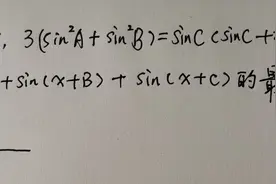 , 3(sin²A+sin²B)=sinC(sinC+
+sin(x+B)+sin(x+C)的